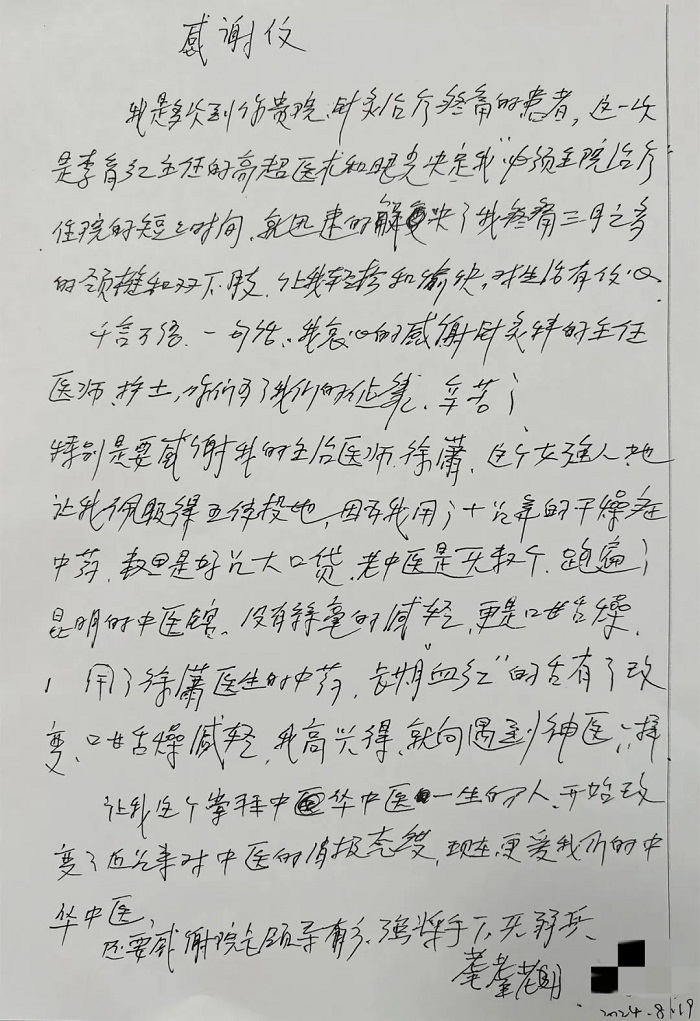 感谢仪
我是多次到你贵院针灸治疗疼痛的患者，这一次
是李育红主任的高超医术和眼光决定我"必须住院治疗"
住院的短短时间，就迅速的解决了我疼痛三月之多
的颈椎和双下肢，让我轻松和愉快，对生活有信心。
千言万语，一句话，我衷心的感谢针灸科的主任
医师、护士，你们为了我们的健康，辛苦了
特别是要感谢我的主治医师，徐蕭，这个女强人她
让我佩服得五体投地，因为我用了十几年的干燥症
中药，数里是好几大口袋，老中医是无数个，跑遍了
昆明的中医馆，没有丝毫的减轻，更是口甘舌燥，
用了徐蕭医生的中药，长期"血红"的舌有了改
变，口甘舌燥减轻，我高兴得，就向遇到神医一样
让我这个崇拜中华中医一生的人，开始改
变了近几年对中医的消极态度，现在，更爱我们的中
华中医，
还要感谢院后领导有方，强将手下无弱兵，
2024.8.19